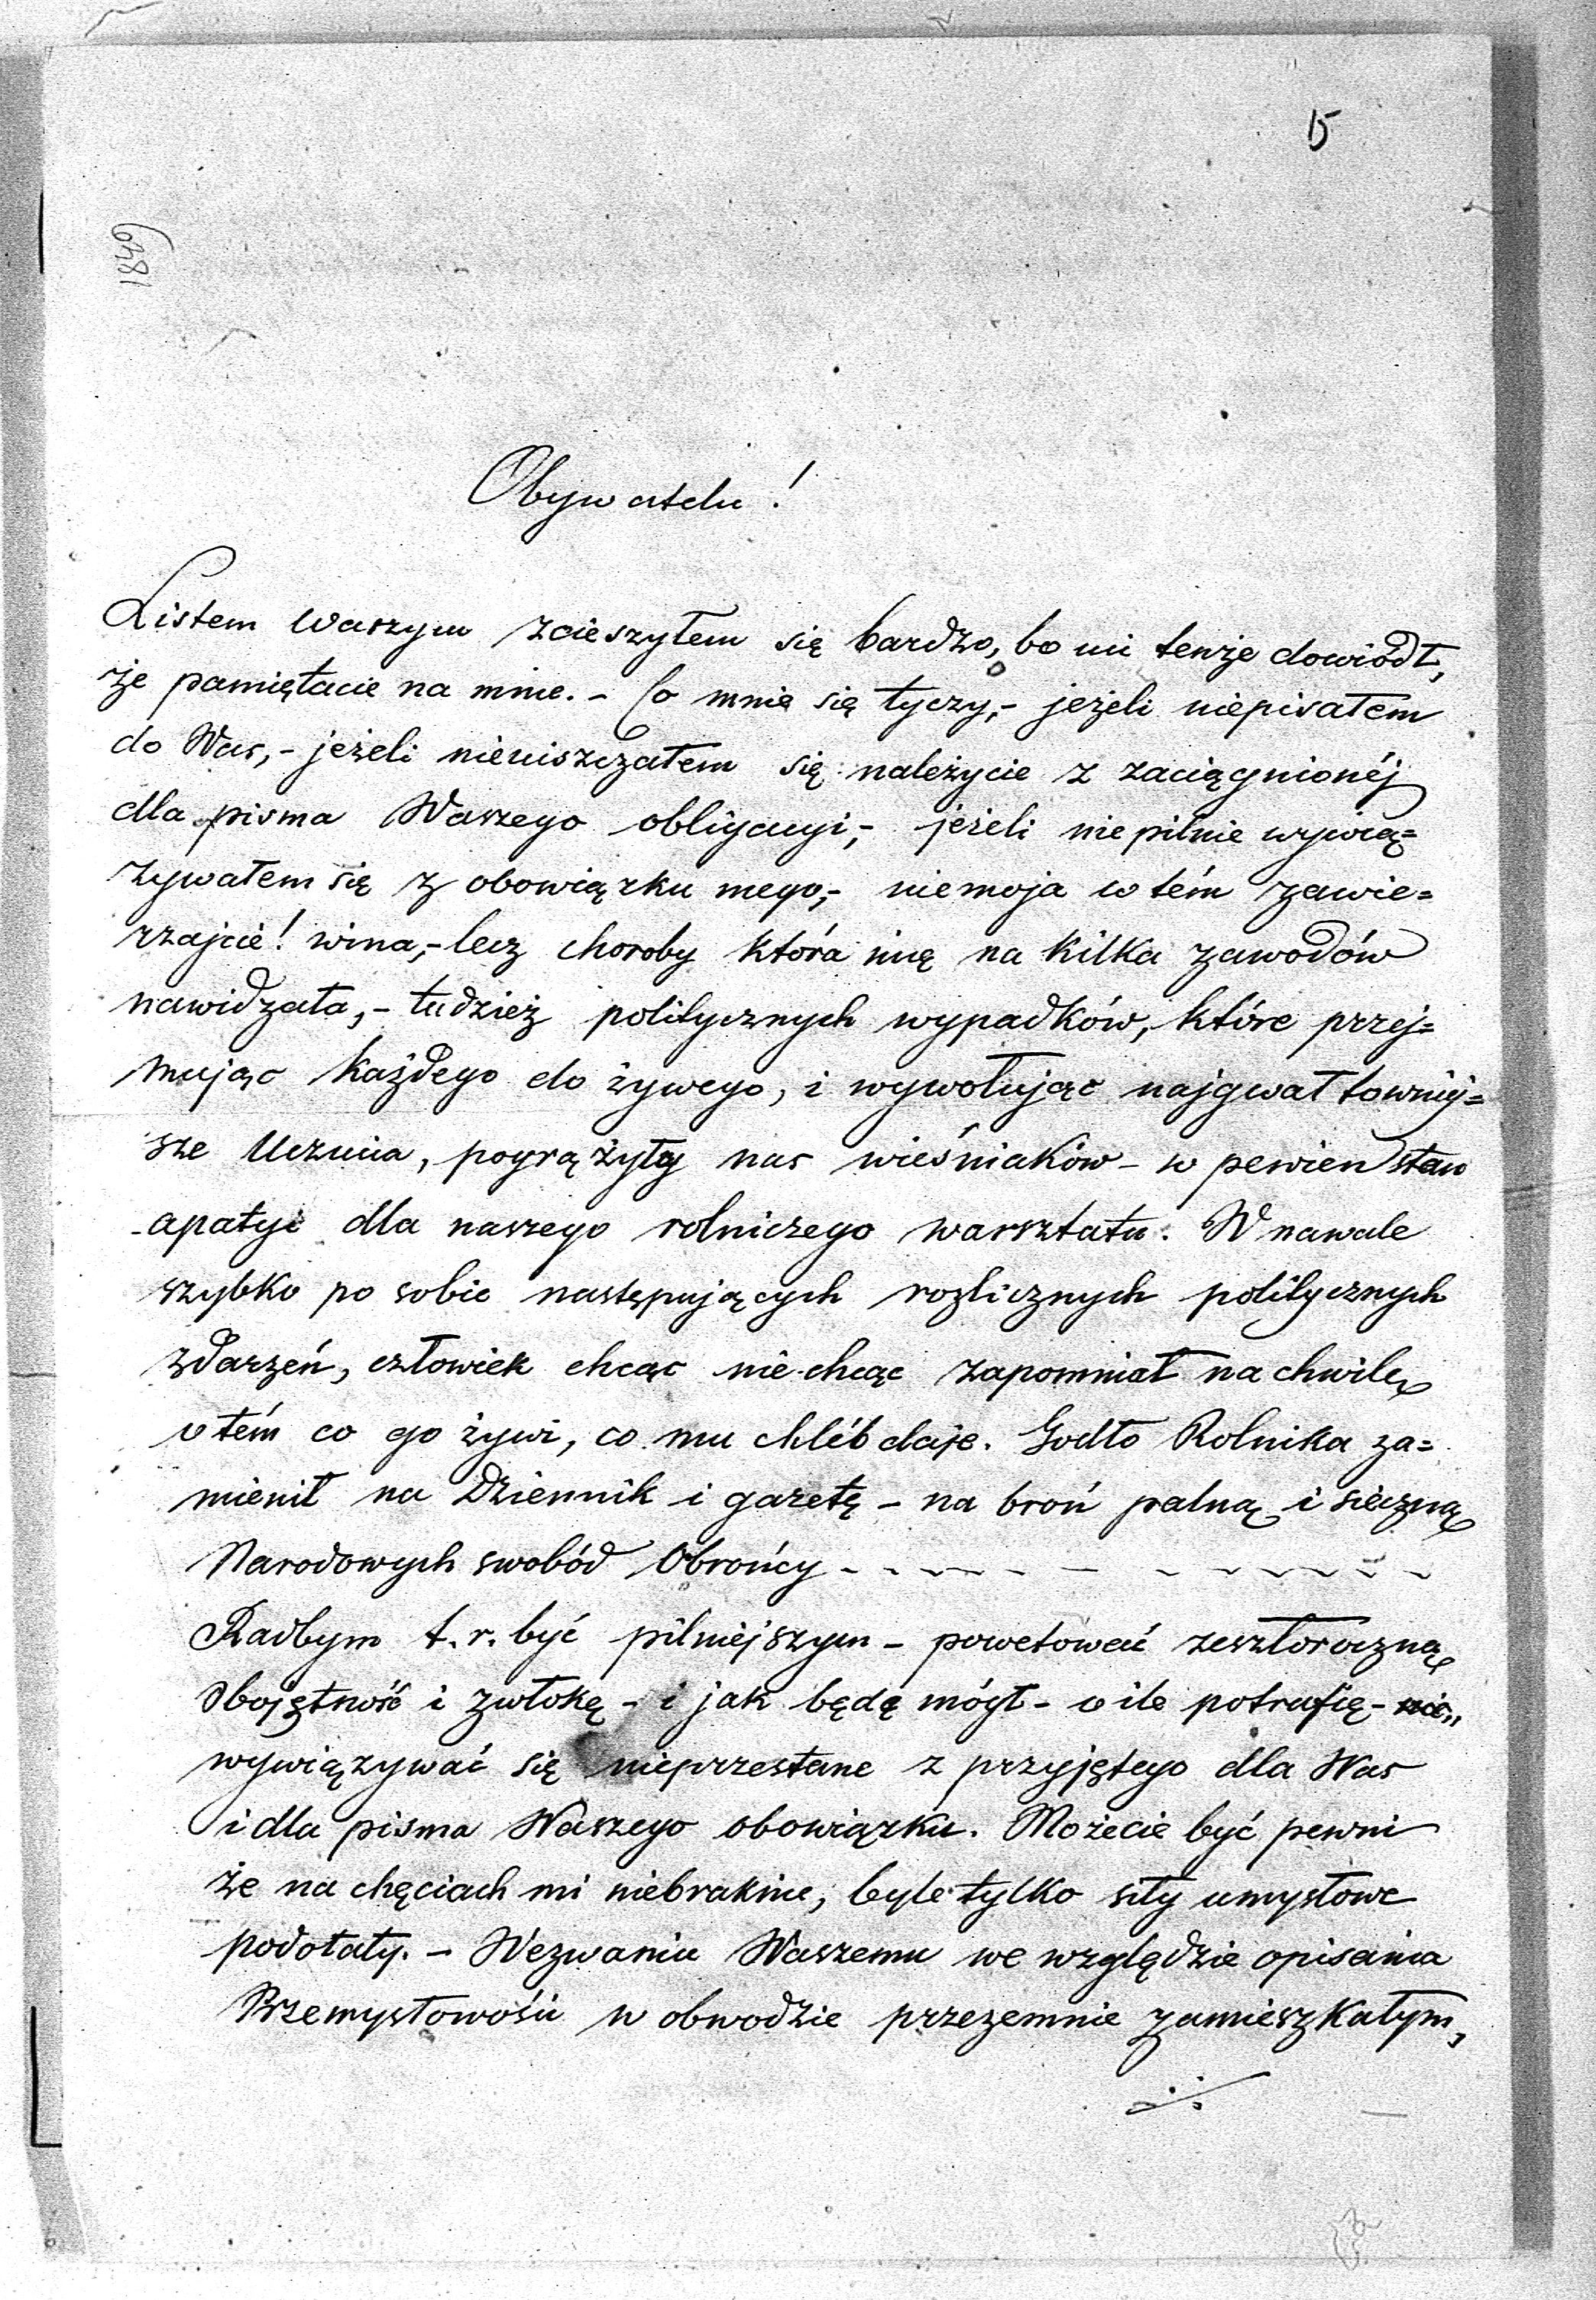 15
1849
Obywatelu!
Listem Waszym zcieszyłem się bardzo, bo mi tenże dowiódł,
że pamiętacie na mnie. - Co mnie się tyczy,- jeżeli niepisałem
do Was,- jeżeli nieuiszczałem się należycie z zaciągnionéj
dla pisma Waszego obligacyi,- jeżeli niepilnie wywią=
zywałem się z obowiązku mego,- niemoja w tém zawie=
rzajcie! wina,- lecz choroby która mię na kilka zawodów
nawidzała,- tudzież politycznych wypadków, które przej=
mując każdego do żywego, i wywołując najgwałtowniéj=
sze uczucia, pogrążyły nas wieśniaków - w pewien stan
apatyi dla naszego rolniczego warsztatu. W nawale
szybko po sobie następujących rozlicznych politycznych
zdarzeń, człowiek chcąc nie chcąc zapomniał na chwilę
o tém co go żywi, co mu chléb daje. Godło Rolnika za=
mienił na Dziennik i gazetę - na broń palną i sieczną
Narodowych swobód Obrońcy - - - - - - - - - - - -
Radbym t.r. być pilniejszym - powetować zeszłoroczną
obojętność i zwłokę - i jak będę mógł - o ile potrafię -
wywiązywać się nieprzestane z przyjętego dla Was
i dla pisma Waszego obowiązku. Możecie być pewni
że na chęciach mi niebraknie, byle tylko siły umysłowe
podołały. - Wezwaniu Waszemu we względzie opisania
Przemysłowości w obwodzie przezemnie zamieszkałym,
./.